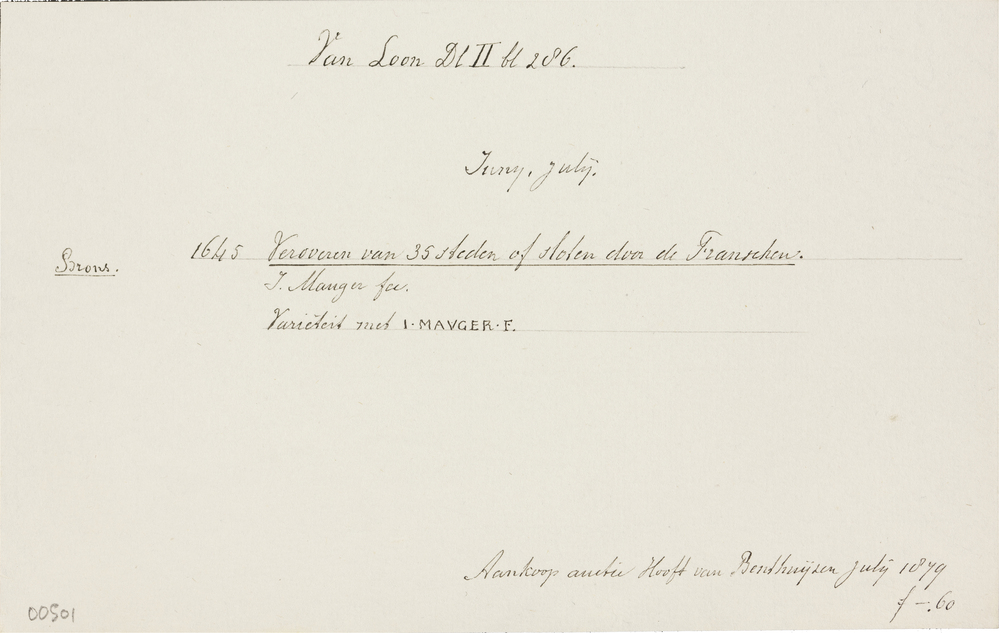 Van Loon Dl II bl 286.
Juny, july.
Brons.
1645 Veroveren van 35 steden of sloten door de Franschen.
I. Mauger fec.
Variëteit met I·MAVGER·F.
Aankoop auctie Hooft van Benthuijzen july 1879
f -.60
00501